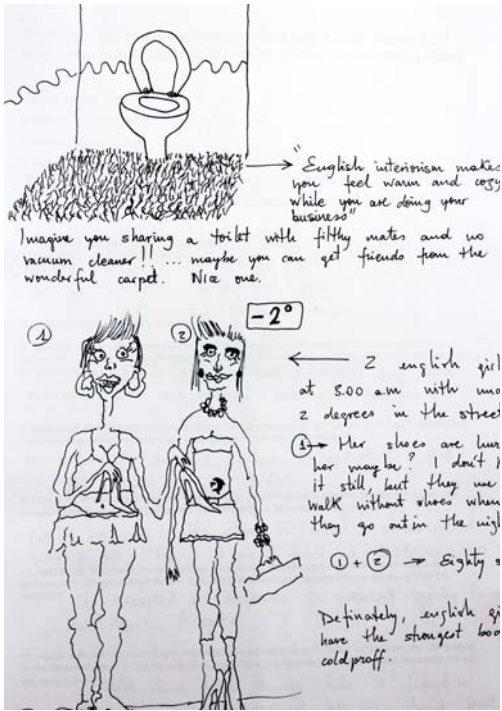 "English interiorism makes
you feel warm and cozy
while you are doing your
business"
Imagine you sharing a toilet with filthy mates and no
vacuum cleaner!! ... maybe you can get friends from the
wonderful carpet. Nice one.
1
2
-2°
2 english girl
at 8.00 a.m with
2 degrees in the street
1 → Her shoes are
her maybe? I don't
it still, but they use
walk without shoes when
they go out in the
1 + 2 → Eighty
Definately, english
have the strongest
coldproff.